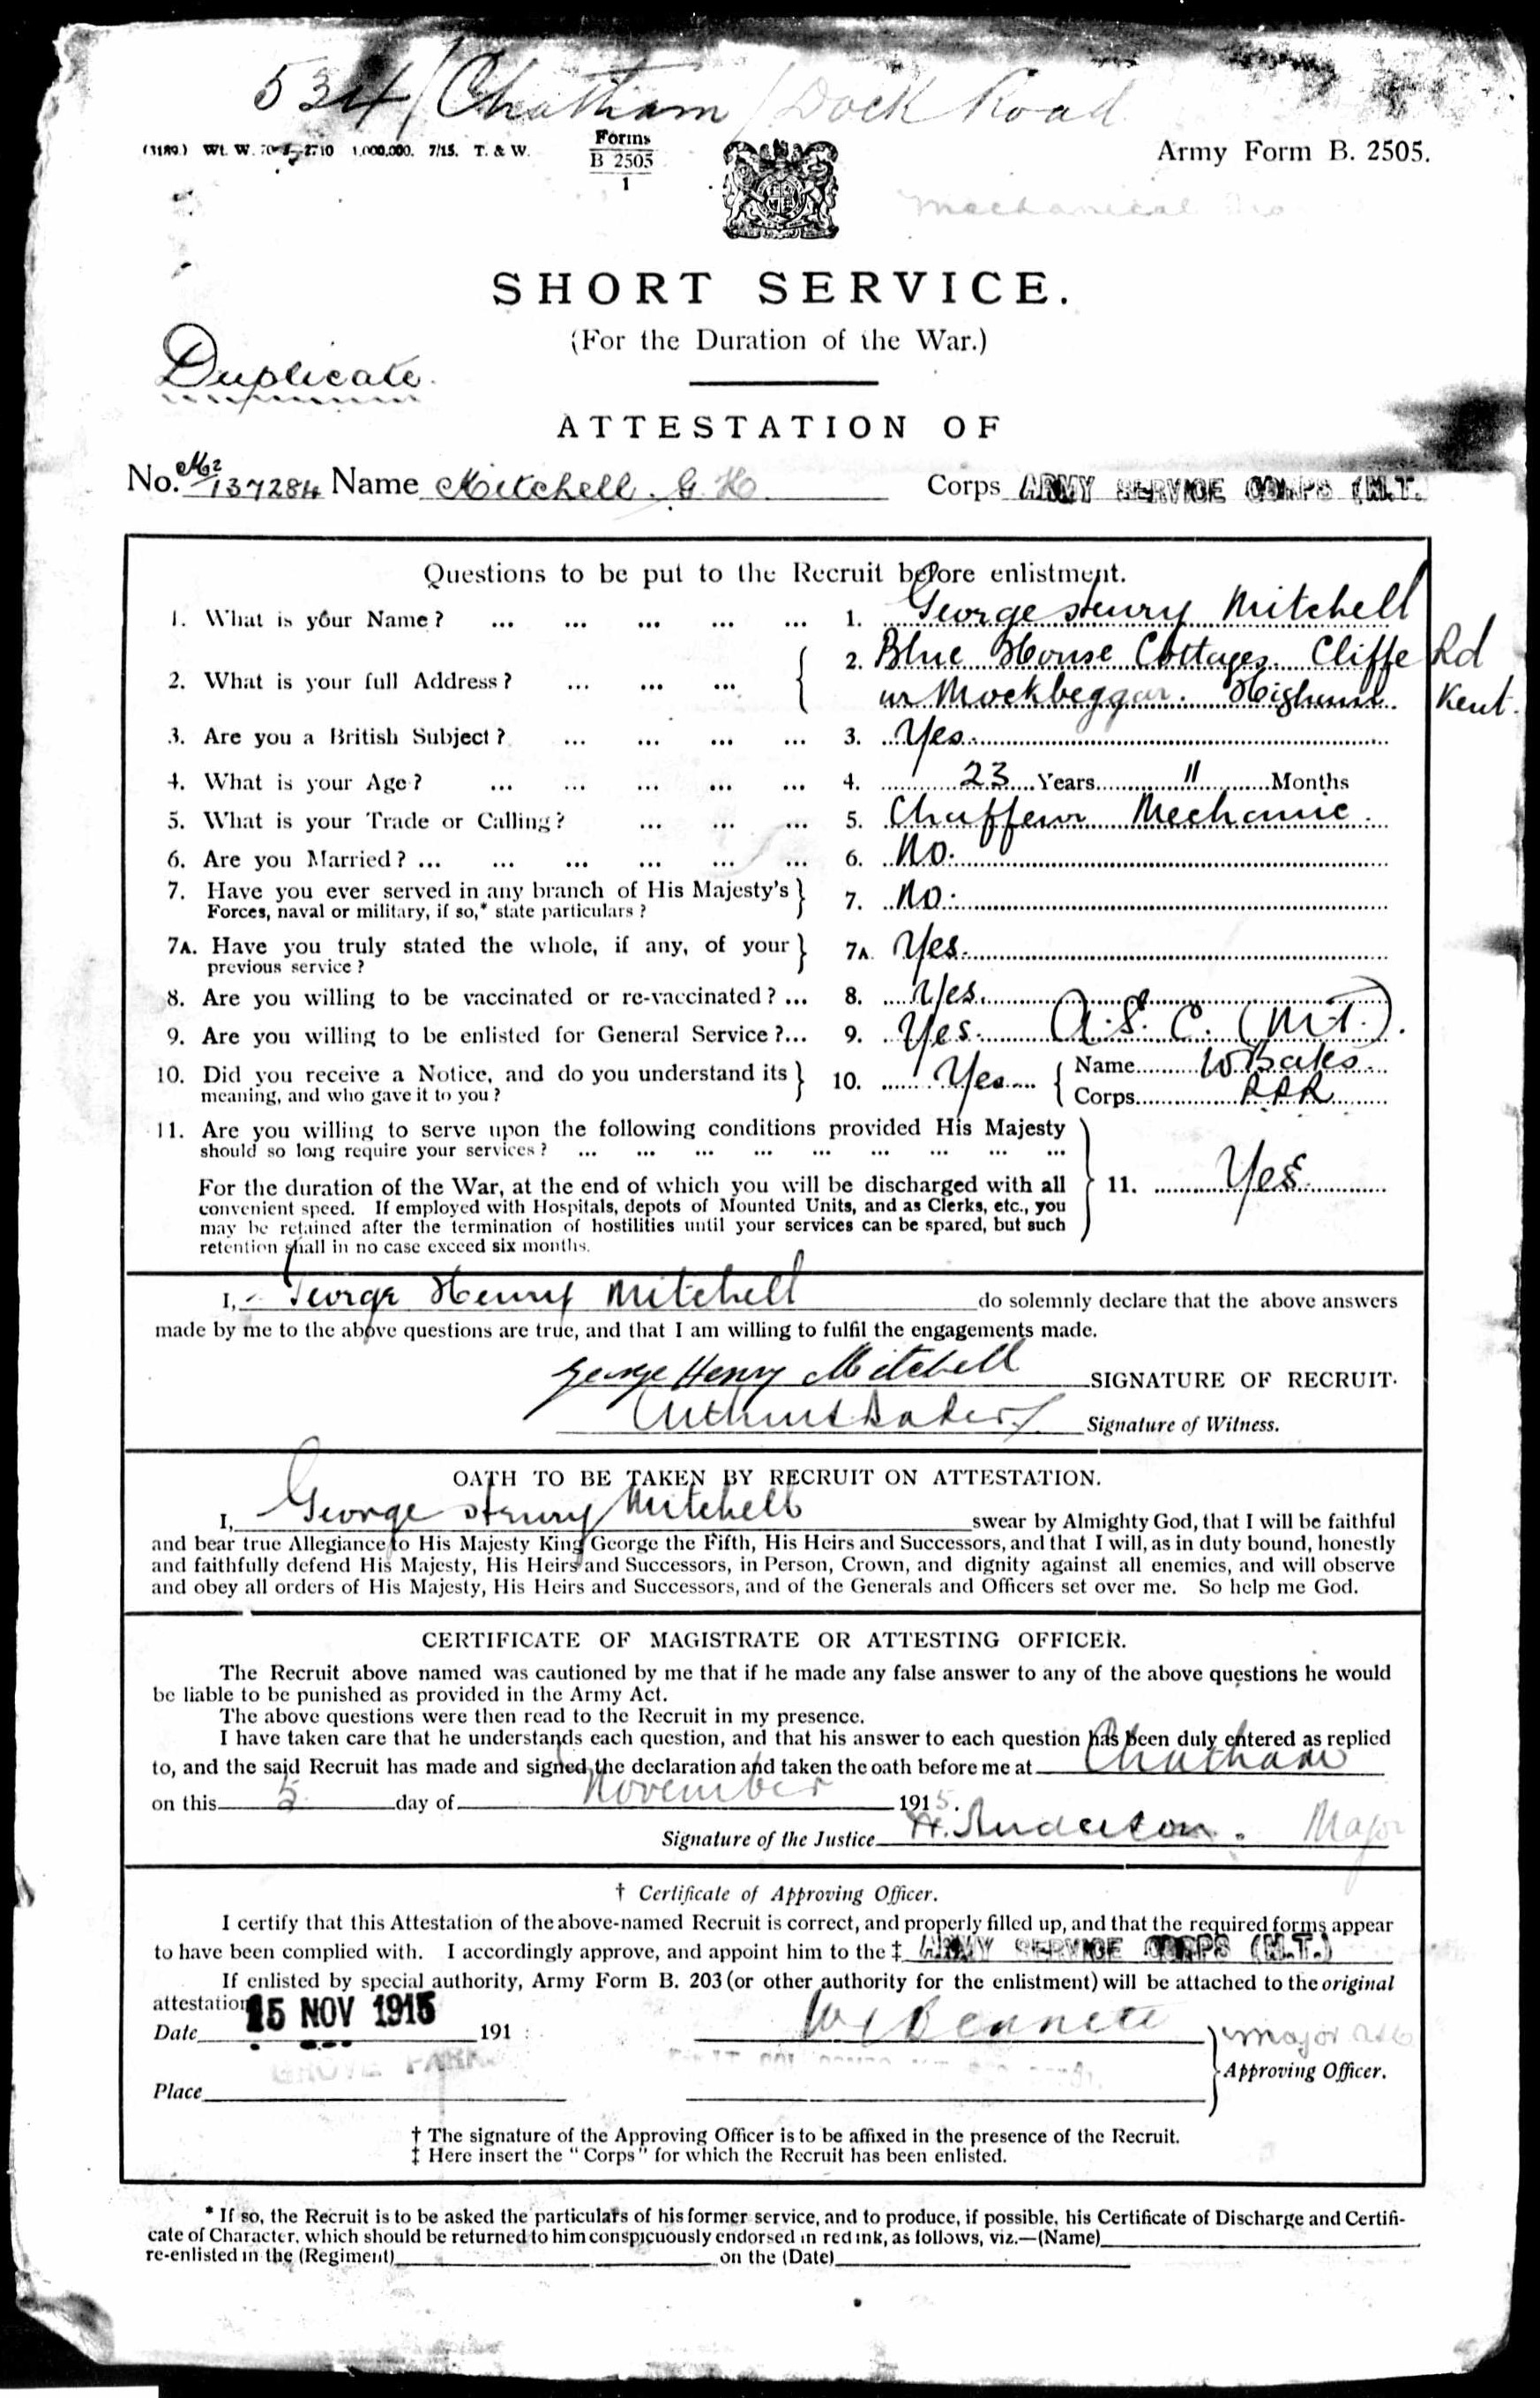 534 / Chatham / Dock Road
(3189.) Wt. W. 2710 1,000,000. 7/15. T. & W. Forms B 2505 1 Army Form B. 2505.
Mechanical
SHORT SERVICE.
(For the Duration of the War.)
Duplicate
ATTESTATION OF
No. M2/137284 Name Mitchell. G. H. Corps ARMY SERVICE CORPS (M.T.
Questions to be put to the Recruit before enlistment.
1. What is your Name? ... ... ... ... ... 1. George Henry Mitchell
2. What is your full Address? ... ... ... 2. Blue House Cottages. Cliffe Rd
nr Mockbeggar. Higham. Kent.
3. Are you a British Subject? ... ... ... ... 3. Yes.
4. What is your Age? ... ... ... ... ... 4. 23 Years 11 Months
5. What is your Trade or Calling? ... ... ... 5. Chaffeur Mechanic.
6. Are you Married? ... ... ... ... ... ... 6. No.
7. Have you ever served in any branch of His Majesty's
Forces, naval or military, if so,* state particulars? 7. No.
7A. Have you truly stated the whole, if any, of your
previous service? 7A. Yes.
8. Are you willing to be vaccinated or re-vaccinated? ... 8. Yes.
9. Are you willing to be enlisted for General Service?... 9. Yes. A.S.C. (M.T.).
10. Did you receive a Notice, and do you understand its
meaning, and who gave it to you? 10. Yes Name W Bates. Corps
11. Are you willing to serve upon the following conditions provided His Majesty
should so long require your services? ... ... ... ... ... ... ... ... ...
For the duration of the War, at the end of which you will be discharged with all 11. Yes
convenient speed. If employed with Hospitals, depots of Mounted Units, and as Clerks, etc., you
may be retained after the termination of hostilities until your services can be spared, but such
retention shall in no case exceed six months.
I, George Henry Mitchell do solemnly declare that the above answers
made by me to the above questions are true, and that I am willing to fulfil the engagements made.
George Henry Mitchell SIGNATURE OF RECRUIT.
Signature of Witness.
OATH TO BE TAKEN BY RECRUIT ON ATTESTATION.
I, George Henry Mitchell swear by Almighty God, that I will be faithful
and bear true Allegiance to His Majesty King George the Fifth, His Heirs and Successors, and that I will, as in duty bound, honestly
and faithfully defend His Majesty, His Heirs and Successors, in Person, Crown, and dignity against all enemies, and will observe
and obey all orders of His Majesty, His Heirs and Successors, and of the Generals and Officers set over me. So help me God.
CERTIFICATE OF MAGISTRATE OR ATTESTING OFFICER.
The Recruit above named was cautioned by me that if he made any false answer to any of the above questions he would
be liable to be punished as provided in the Army Act.
The above questions were then read to the Recruit in my presence.
I have taken care that he understands each question, and that his answer to each question has been duly entered as replied
to, and the said Recruit has made and signed the declaration and taken the oath before me at Chatham
on this 5 day of November 1915.
Signature of the Justice H. Anderson. Major
† Certificate of Approving Officer.
I certify that this Attestation of the above-named Recruit is correct, and properly filled up, and that the required forms appear
to have been complied with. I accordingly approve, and appoint him to the ‡ ARMY SERVICE CORPS (M.T.)
If enlisted by special authority, Army Form B. 203 (or other authority for the enlistment) will be attached to the original
attestation
Date 15 NOV 1915 191 Bennett Major
GROVE PARK Approving Officer.
Place
† The signature of the Approving Officer is to be affixed in the presence of the Recruit.
‡ Here insert the "Corps" for which the Recruit has been enlisted.
* If so, the Recruit is to be asked the particulars of his former service, and to produce, if possible, his Certificate of Discharge and Certifi-
cate of Character, which should be returned to him conspicuously endorsed in red ink, as follows, viz.—(Name)
re-enlisted in the (Regiment) on the (Date)